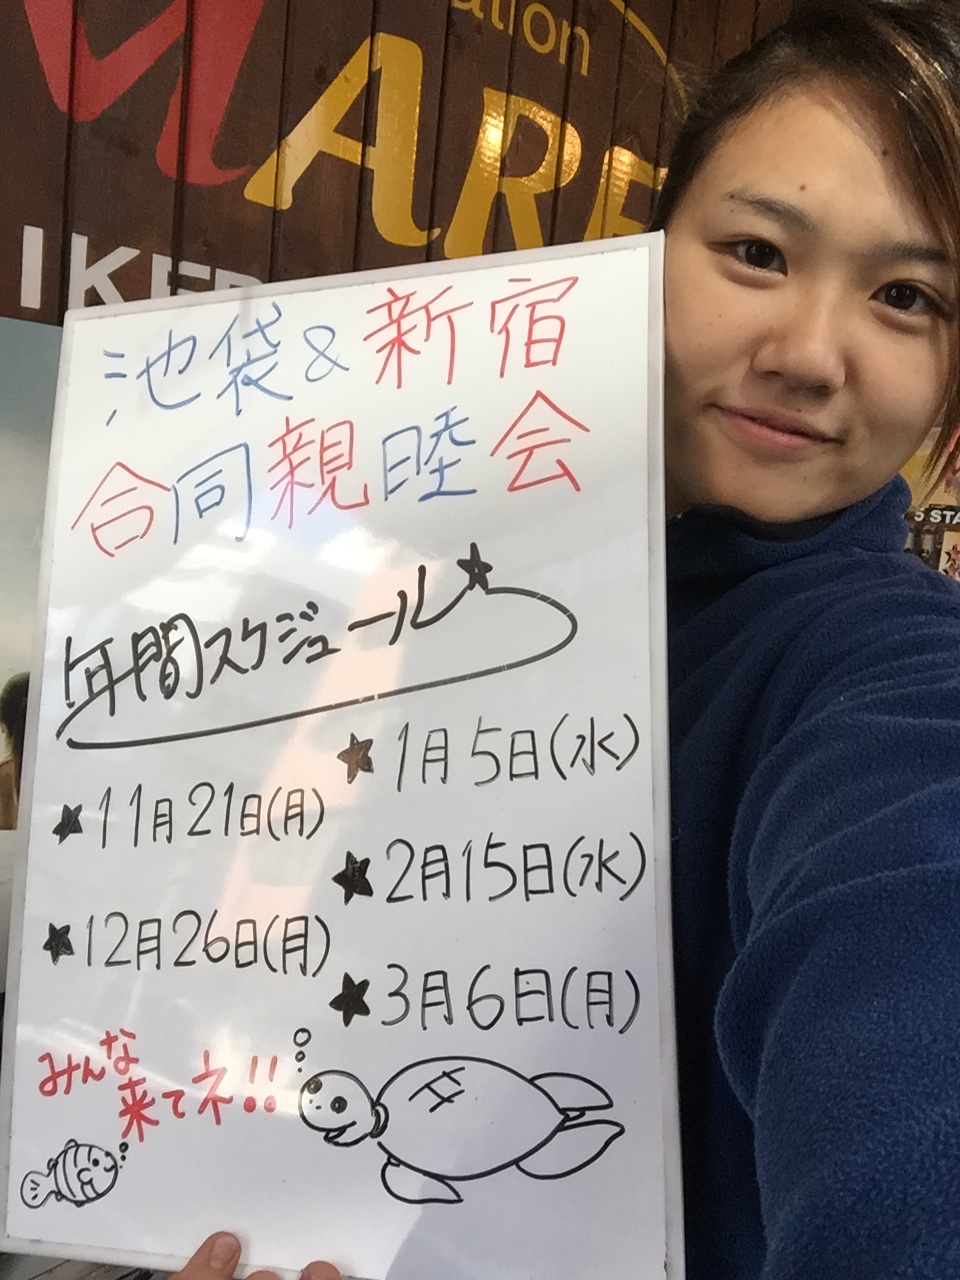 ation
MARE
IKEB
池袋&新宿
合同親睦会
年間スケジュール★
★11月21日(月)
★12月26日(月)
★1月5日(水)
★2月15日(水)
★3月6日(月)
みんな
来てネ!!
5 STA